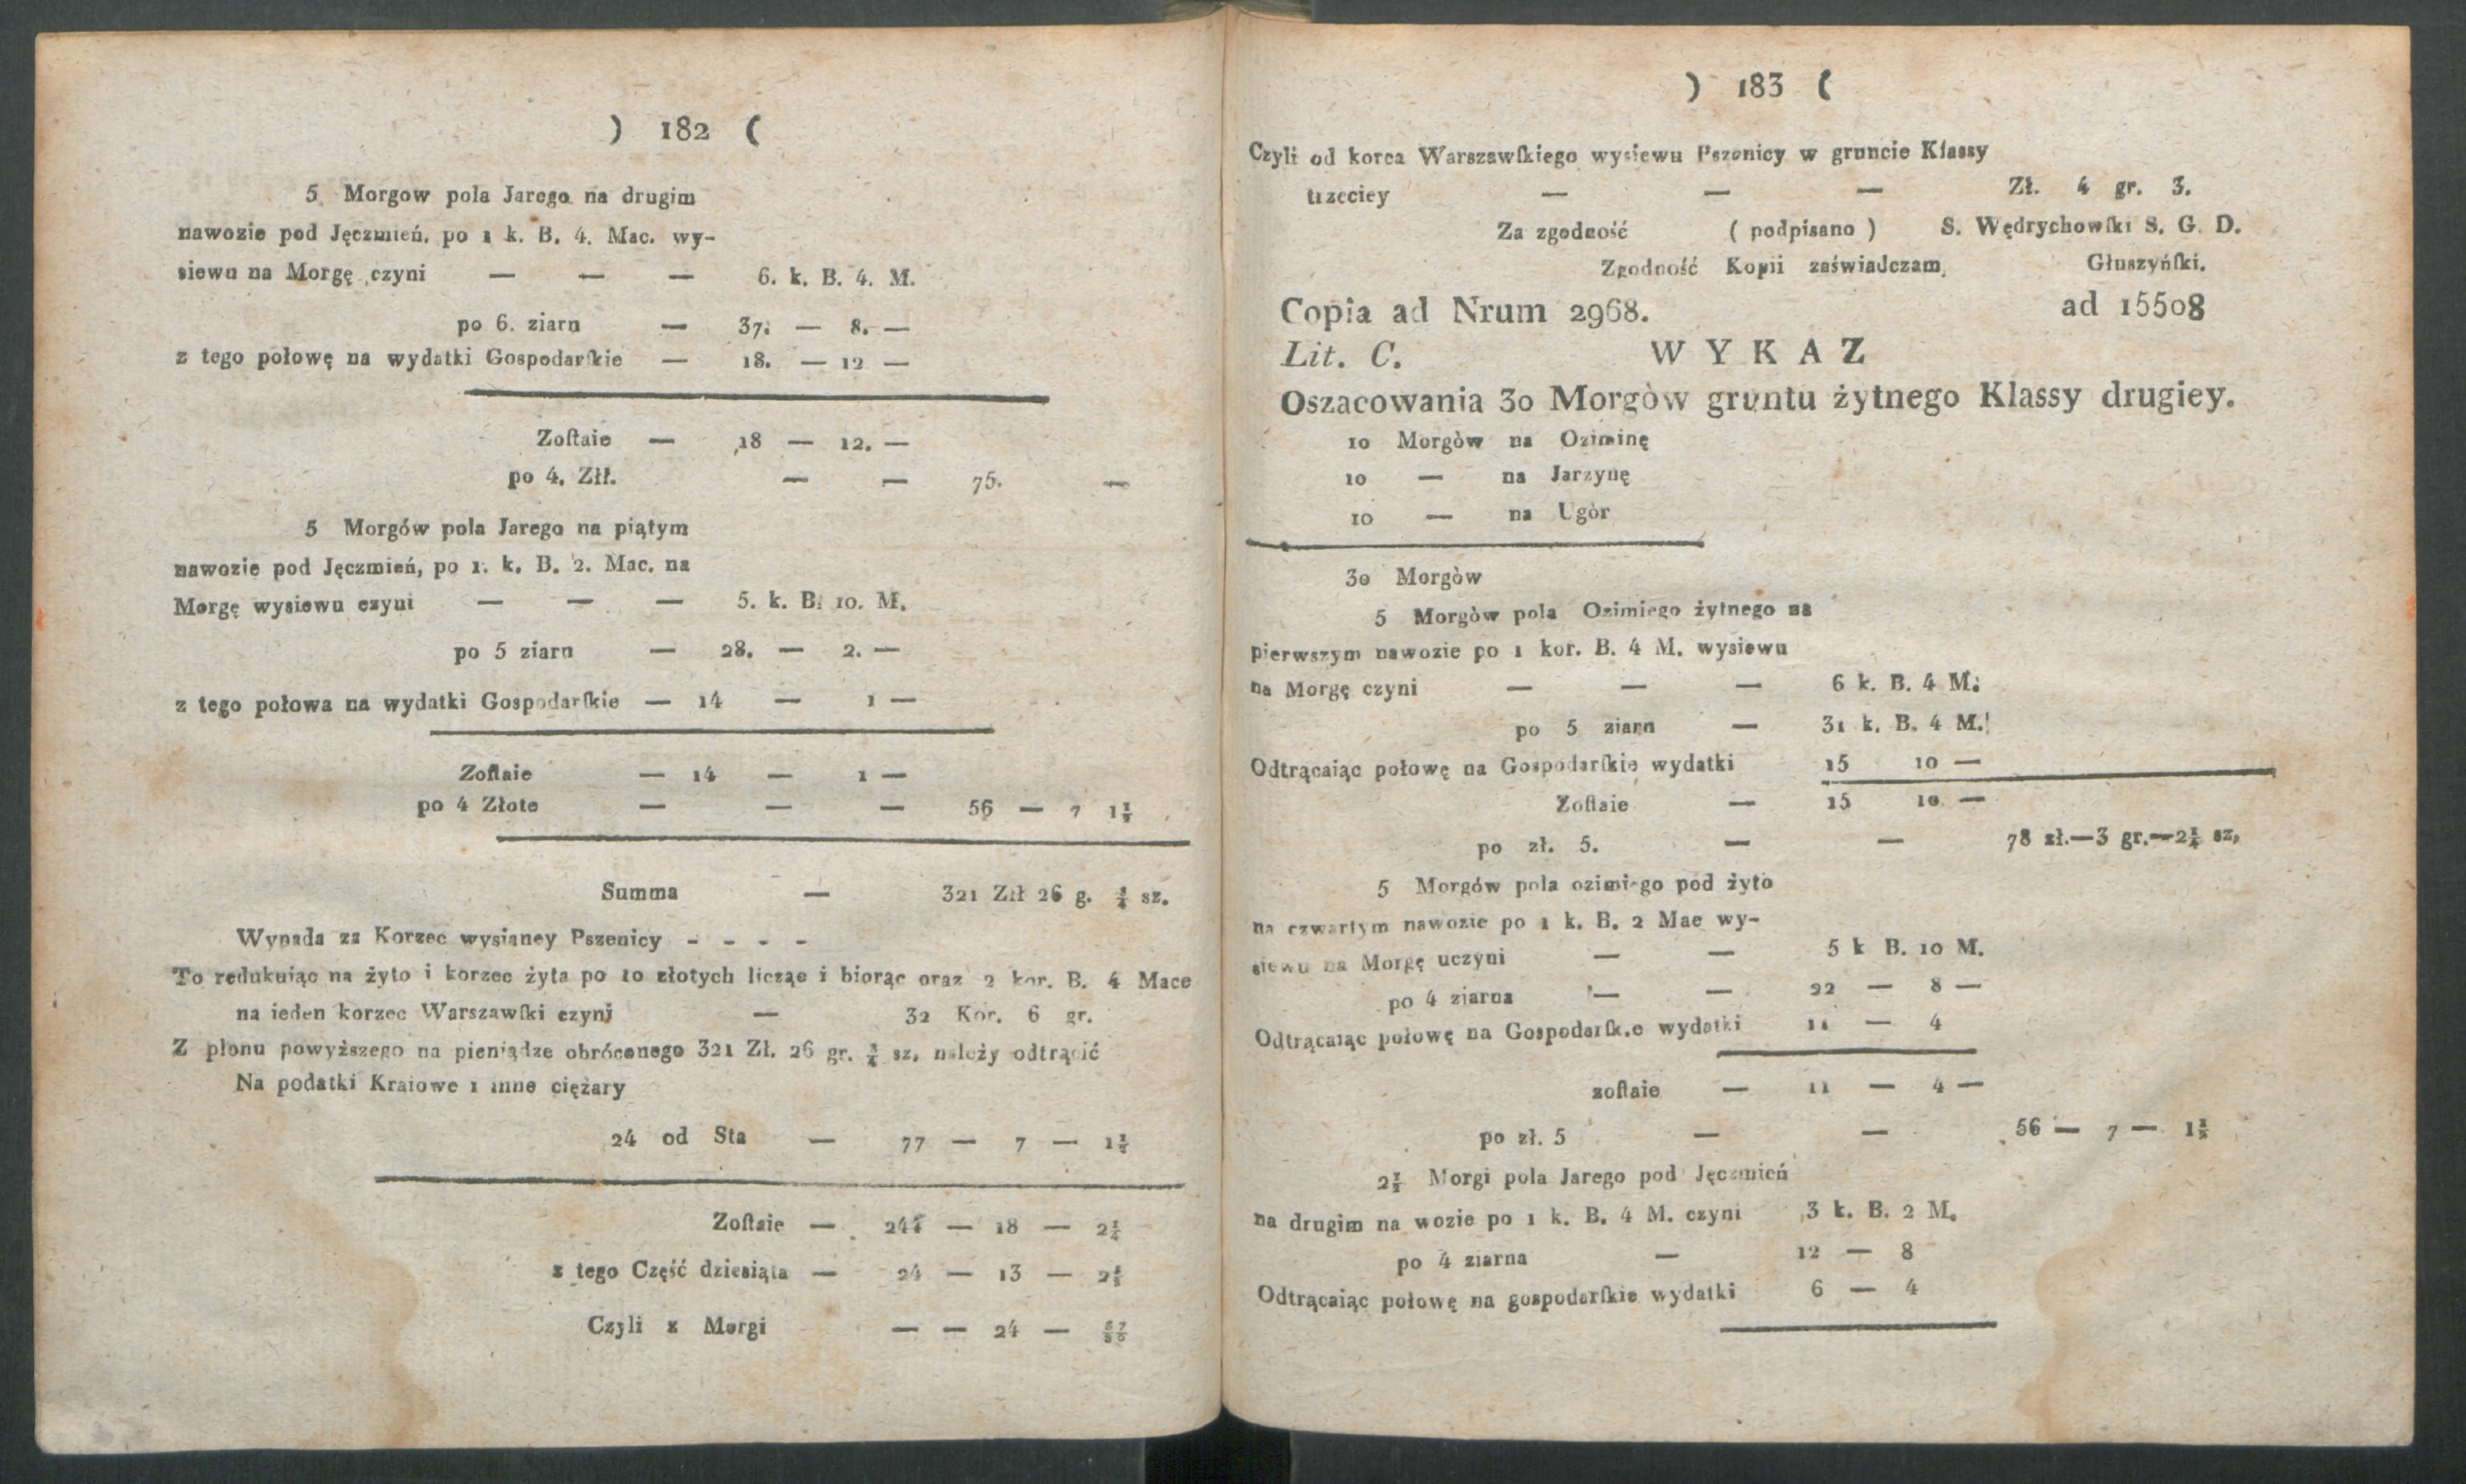 ) 182 (
5 Morgow pola Jarego na drugim
nawozie pod Jęczmień, po 1 k. B. 4. Mac. wy-
siewu na Morgę czyni — — — 6. k. B. 4. M.
po 6. ziarn — 37. — 8. —
z tego połowę na wydatki Gospodarſkie — 18. — 12 —
Zoſtaie — 18 — 12. —
po 4. Złł. — — 75. —
5 Morgów pola Jarego na piątym
nawozie pod Jęczmień, po 1. k. B. 2. Mac. na
Morgę wysiewu czyni — — — 5. k. B. 10. M.
po 5 ziarn — 28. — 2. —
z tego połowa na wydatki Gospodarſkie — 14 — 1 —
Zoſtaie — 14 — 1 —
po 4 Złote — — — 56 — 7 1½
Summa — 321 Złł 26 g. ¾ sz.
Wypada za Korzec wysianey Pszenicy - - - -
To redukuiąc na żyto i korzec żyta po 10 złotych licząc i biorąc oraz 2 kor. B. 4 Mace
na ieden korzec Warszawſki czyni — 32 Kor. 6 gr.
Z plonu powyższego na pieniądze obróconego 321 Zł. 26 gr. ¾ sz. należy odtrącić
Na podatki Kraiowe i inne ciężary
24 od Sta — 77 — 7 — 1½
Zoſtaie — 244 — 18 — 2¼
z tego Część dziesiąta — 24 — 13 —
Czyli z Morgi — — 24 —
) 183 (
Czyli od korca Warszawſkiego wysiewu Pszenicy w gruncie Klassy
trzeciey — — — Zł. 4 gr. 3.
Za zgodność ( podpisano ) S. Wędrychowſki S. G. D.
Zgodność Kopii zaświadczam, Głuszyńſki.
Copia ad Nrum 2968. ad 15508
Lit. C. WYKAZ
Oszacowania 30 Morgòw gruntu żytnego Klassy drugiey.
10 Morgòw na Oziminę
10 — na Jarzynę
10 — na Ugòr
30 Morgòw
5 Morgòw pola Ozimiego żytnego na
pierwszym nawozie po 1 kor. B. 4 M. wysiewu
na Morgę czyni — — — 6 k. B. 4 M.
po 5 ziarn — 31 k. B. 4 M.
Odtrącaiąc połowę na Gospodarſkie wydatki 15 10 —
Zoſtaie — 15 10 —
po zł. 5. — — 78 zł.—3 gr.—2¼ sz,
5 Morgów pola ozimiego pod żyto
na czwartym nawozie po 1 k. B. 2 Mac wy-
siewu na Morgę uczyni — — 5 k B. 10 M.
po 4 ziarna — — 22 — 8 —
Odtrącaiąc połowę na Gospodarſkie wydatki 11 — 4
zoſtaie — 11 — 4 —
po zł. 5 — — 56 — 7 — 1½
2½ Morgi pola Jarego pod Jęczmień
na drugim na wozie po 1 k. B. 4 M. czyni 3 k. B. 2 M.
po 4 ziarna — 12 — 8
Odtrącaiąc połowę na gospodarſkie wydatki 6 — 4